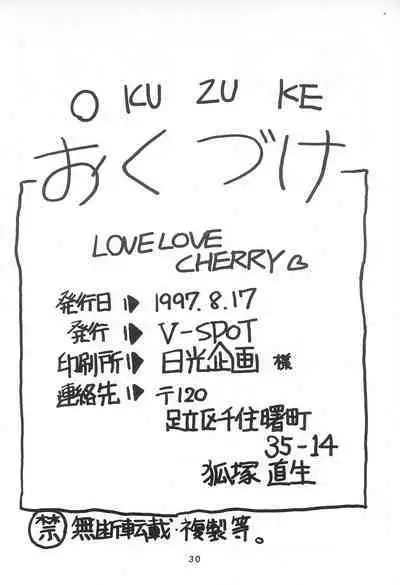 OKUZUKE
おくづけ
LOVELOVE
CHERRY♡
発行日▶ 1997.8.17
発行▶ V-SPOT
印刷所▶ 日光企画 様
連絡先▶ 〒120
足立区千住曙町
35-14
狐塚 直生
禁 無断転載・複製等。
30